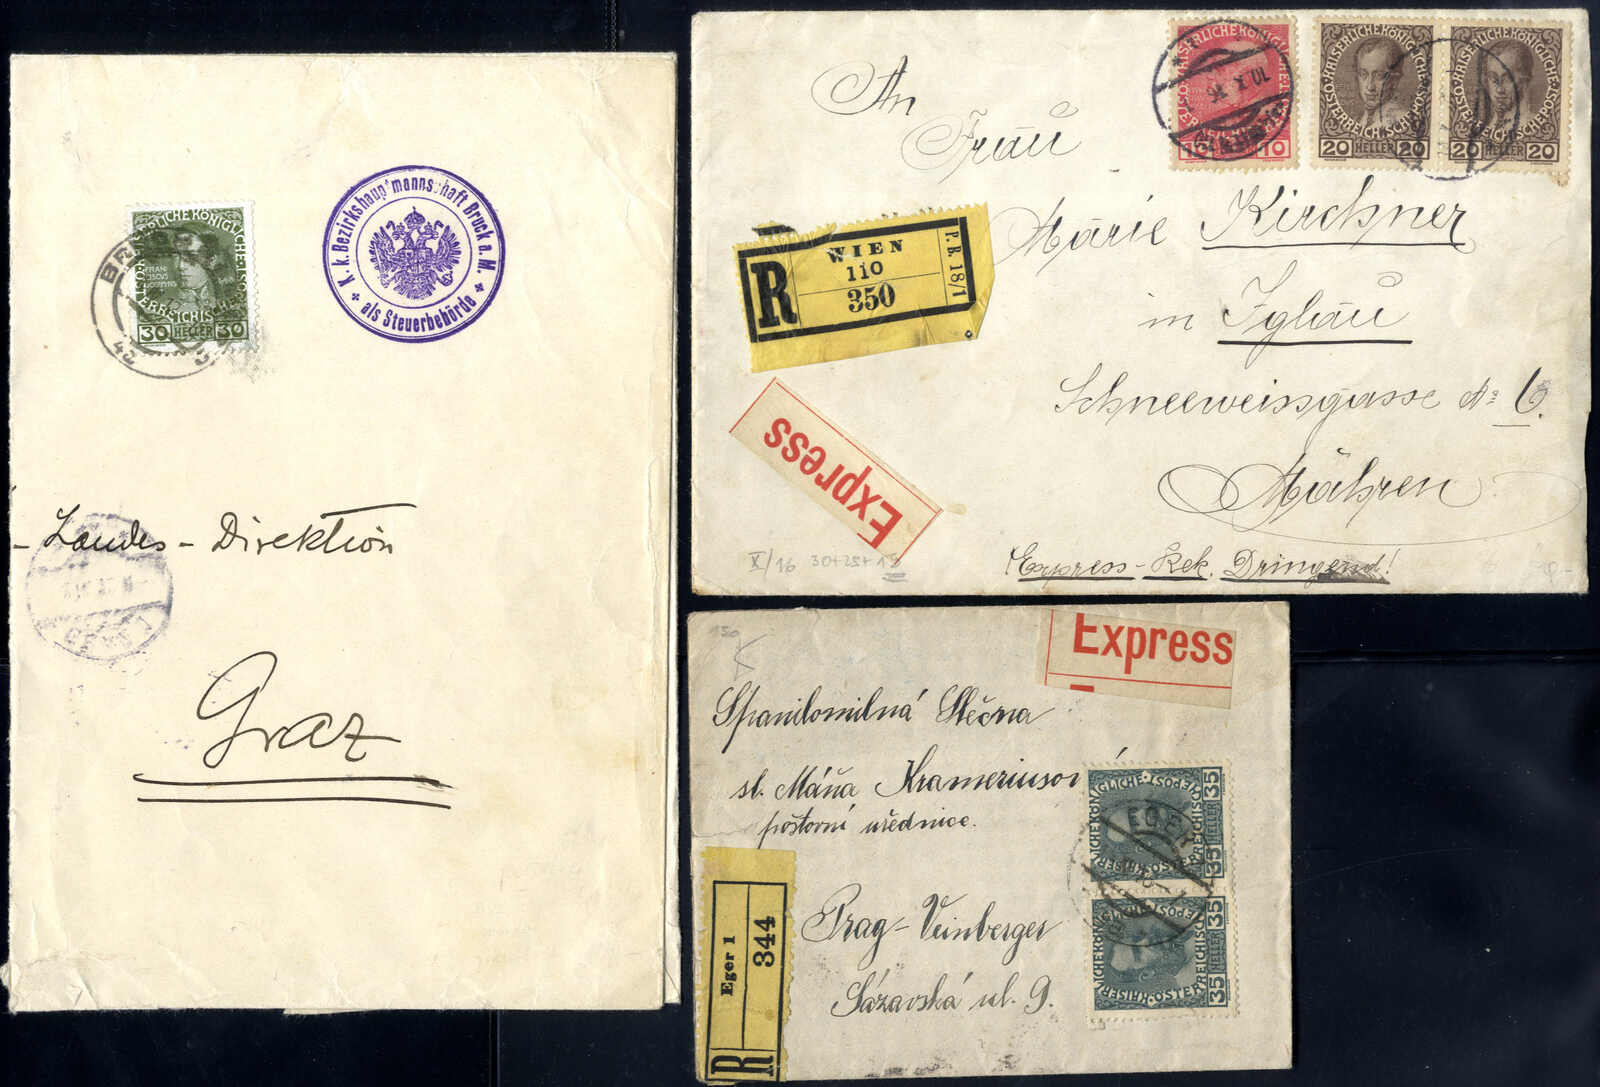 ÖSTERREICHISCHE
30 HELLER 30
K. k. Bezirkshauptmannschaft Bruck a. M.
als Steuerbehörde
Landes-Direktion
Graz
An
Frau
Marie Kirchner
in Iglau
Schneeweissgasse No 6.
Mähren
Express-Rek. Dringend!
KAISERLICHE KÖNIGLICHE
ÖSTERREICHISCHE POST
10
20 HELLER 20
20 HELLER 20
10.X.16
R
WIEN
110
350
P. B. 18/1
Express
X/16 30+25+15
Express
150
Spanilomilná Slečna
sl. Máňa Krameriusov
poštovní uřednice.
Prag-Veinberger
Sázavská ul. 9.
R
Eger 1
344
KAISERLICHE KÖNIGLICHE
ÖSTERREICHISCHE POST
35 HELLER 35
EGER
KAISERLICHE KÖNIGLICHE
ÖSTERREICHISCHE POST
35 HELLER 35